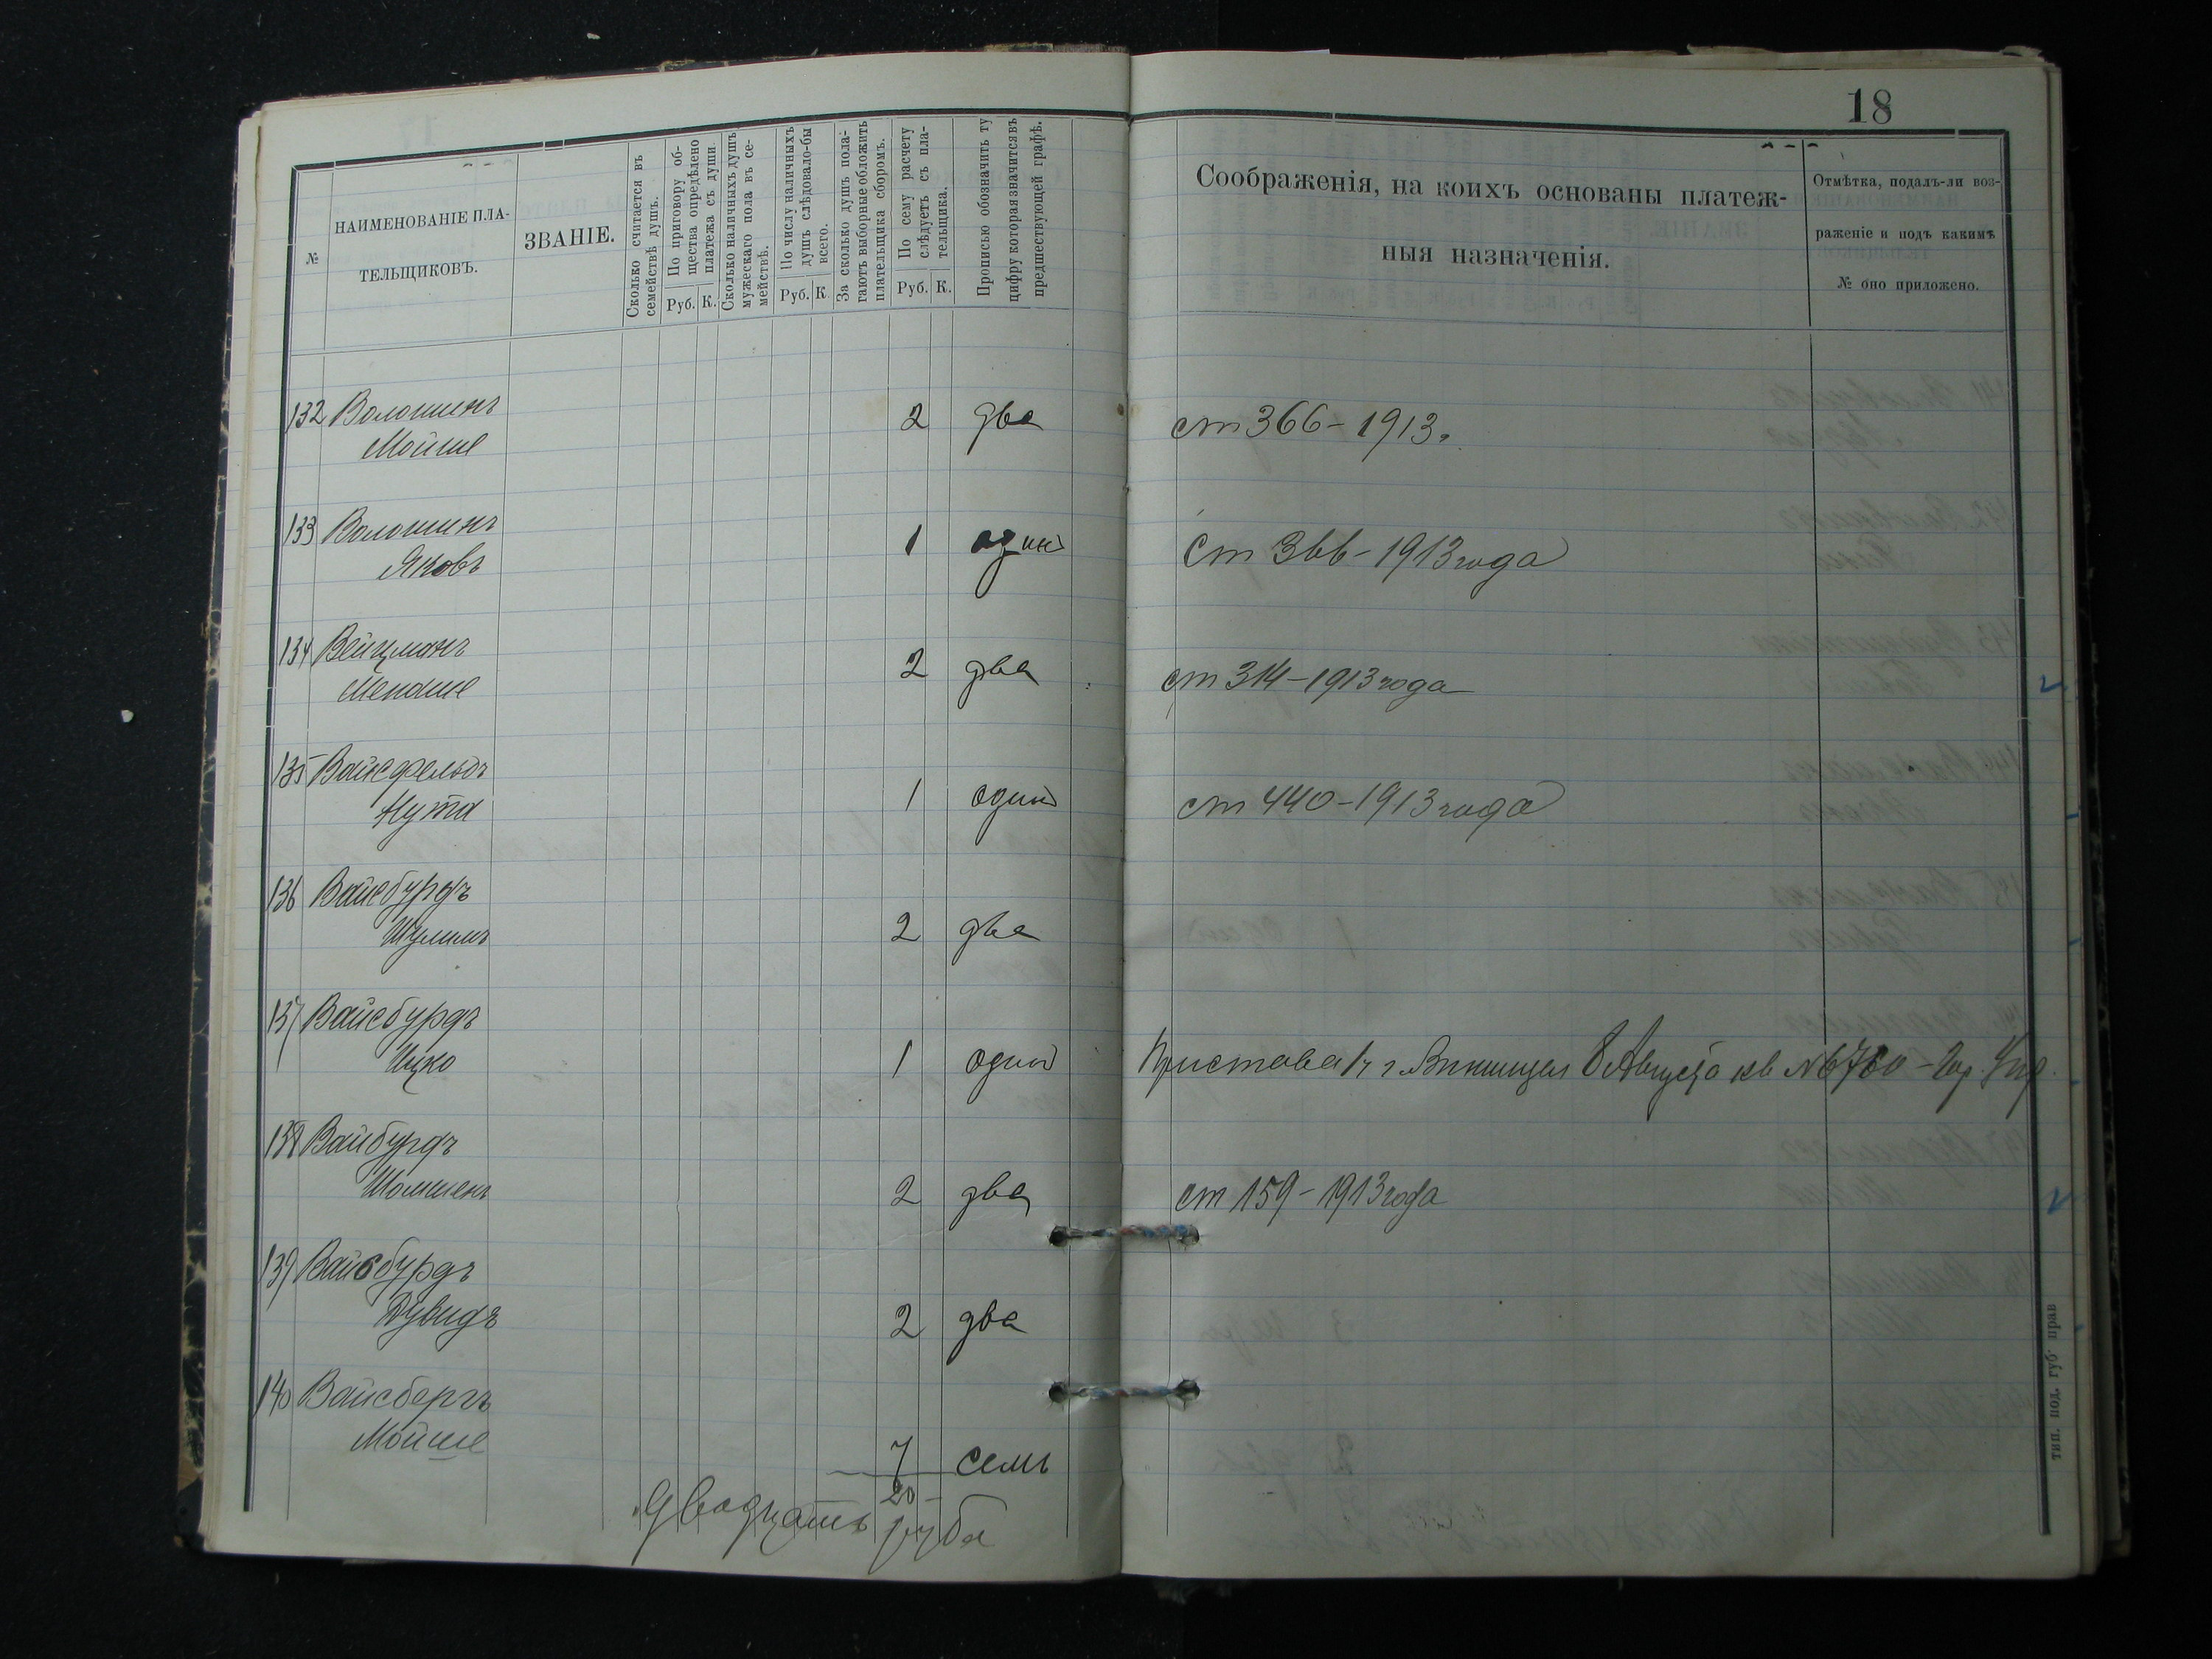 18
№
НАИМЕНОВАНІЕ ПЛА-
ТЕЛЬЩИКОВЪ.
ЗВАНІЕ.
Сколько считается въ
семействѣ душъ.
По приговору об-
щества опредѣлено
платежа съ души.
Руб. К.
Сколько наличныхъ душъ
мужескаго пола въ се-
мействѣ.
По числу наличныхъ
душъ слѣдовало-бы
всего.
Руб. К
За сколько душъ пола-
гаютъ выборные обложить
плательщика сборомъ.
По сему расчету
слѣдуетъ съ пла-
тельщика.
Руб. К.
Прописью обозначить ту
цифру которая значится въ
предшествующей графѣ.
Соображенія, на коихъ основаны платеж-
ныя назначенія.
Отмѣтка, подалъ-ли воз-
раженіе и подъ какимъ
№ оно приложено.
132 Волошинъ
Мойше 2 два ст 366-1913.
133 Волошинъ
Яковъ 1 один ст 366-1913 года
134 Вейцманъ
Менаше 2 два ст 314-1913 года
135 Вайсфельдъ
Нута 1 один ст 440-1913 года
136 Вайсбурдъ
Шулимъ 2 два
137 Вайсбурдъ
Ицко 1 один Пристава 1 ч г. Винницы 8 Августа кв № 6760
138 Вайбурдъ
2 два ст 159-1913 года
139 Вайсбурдъ
Дувидъ 2 два
140 Вайсбергъ
Мойше 7 семь
20-
Двадцать руба
тип. под. губ. прав